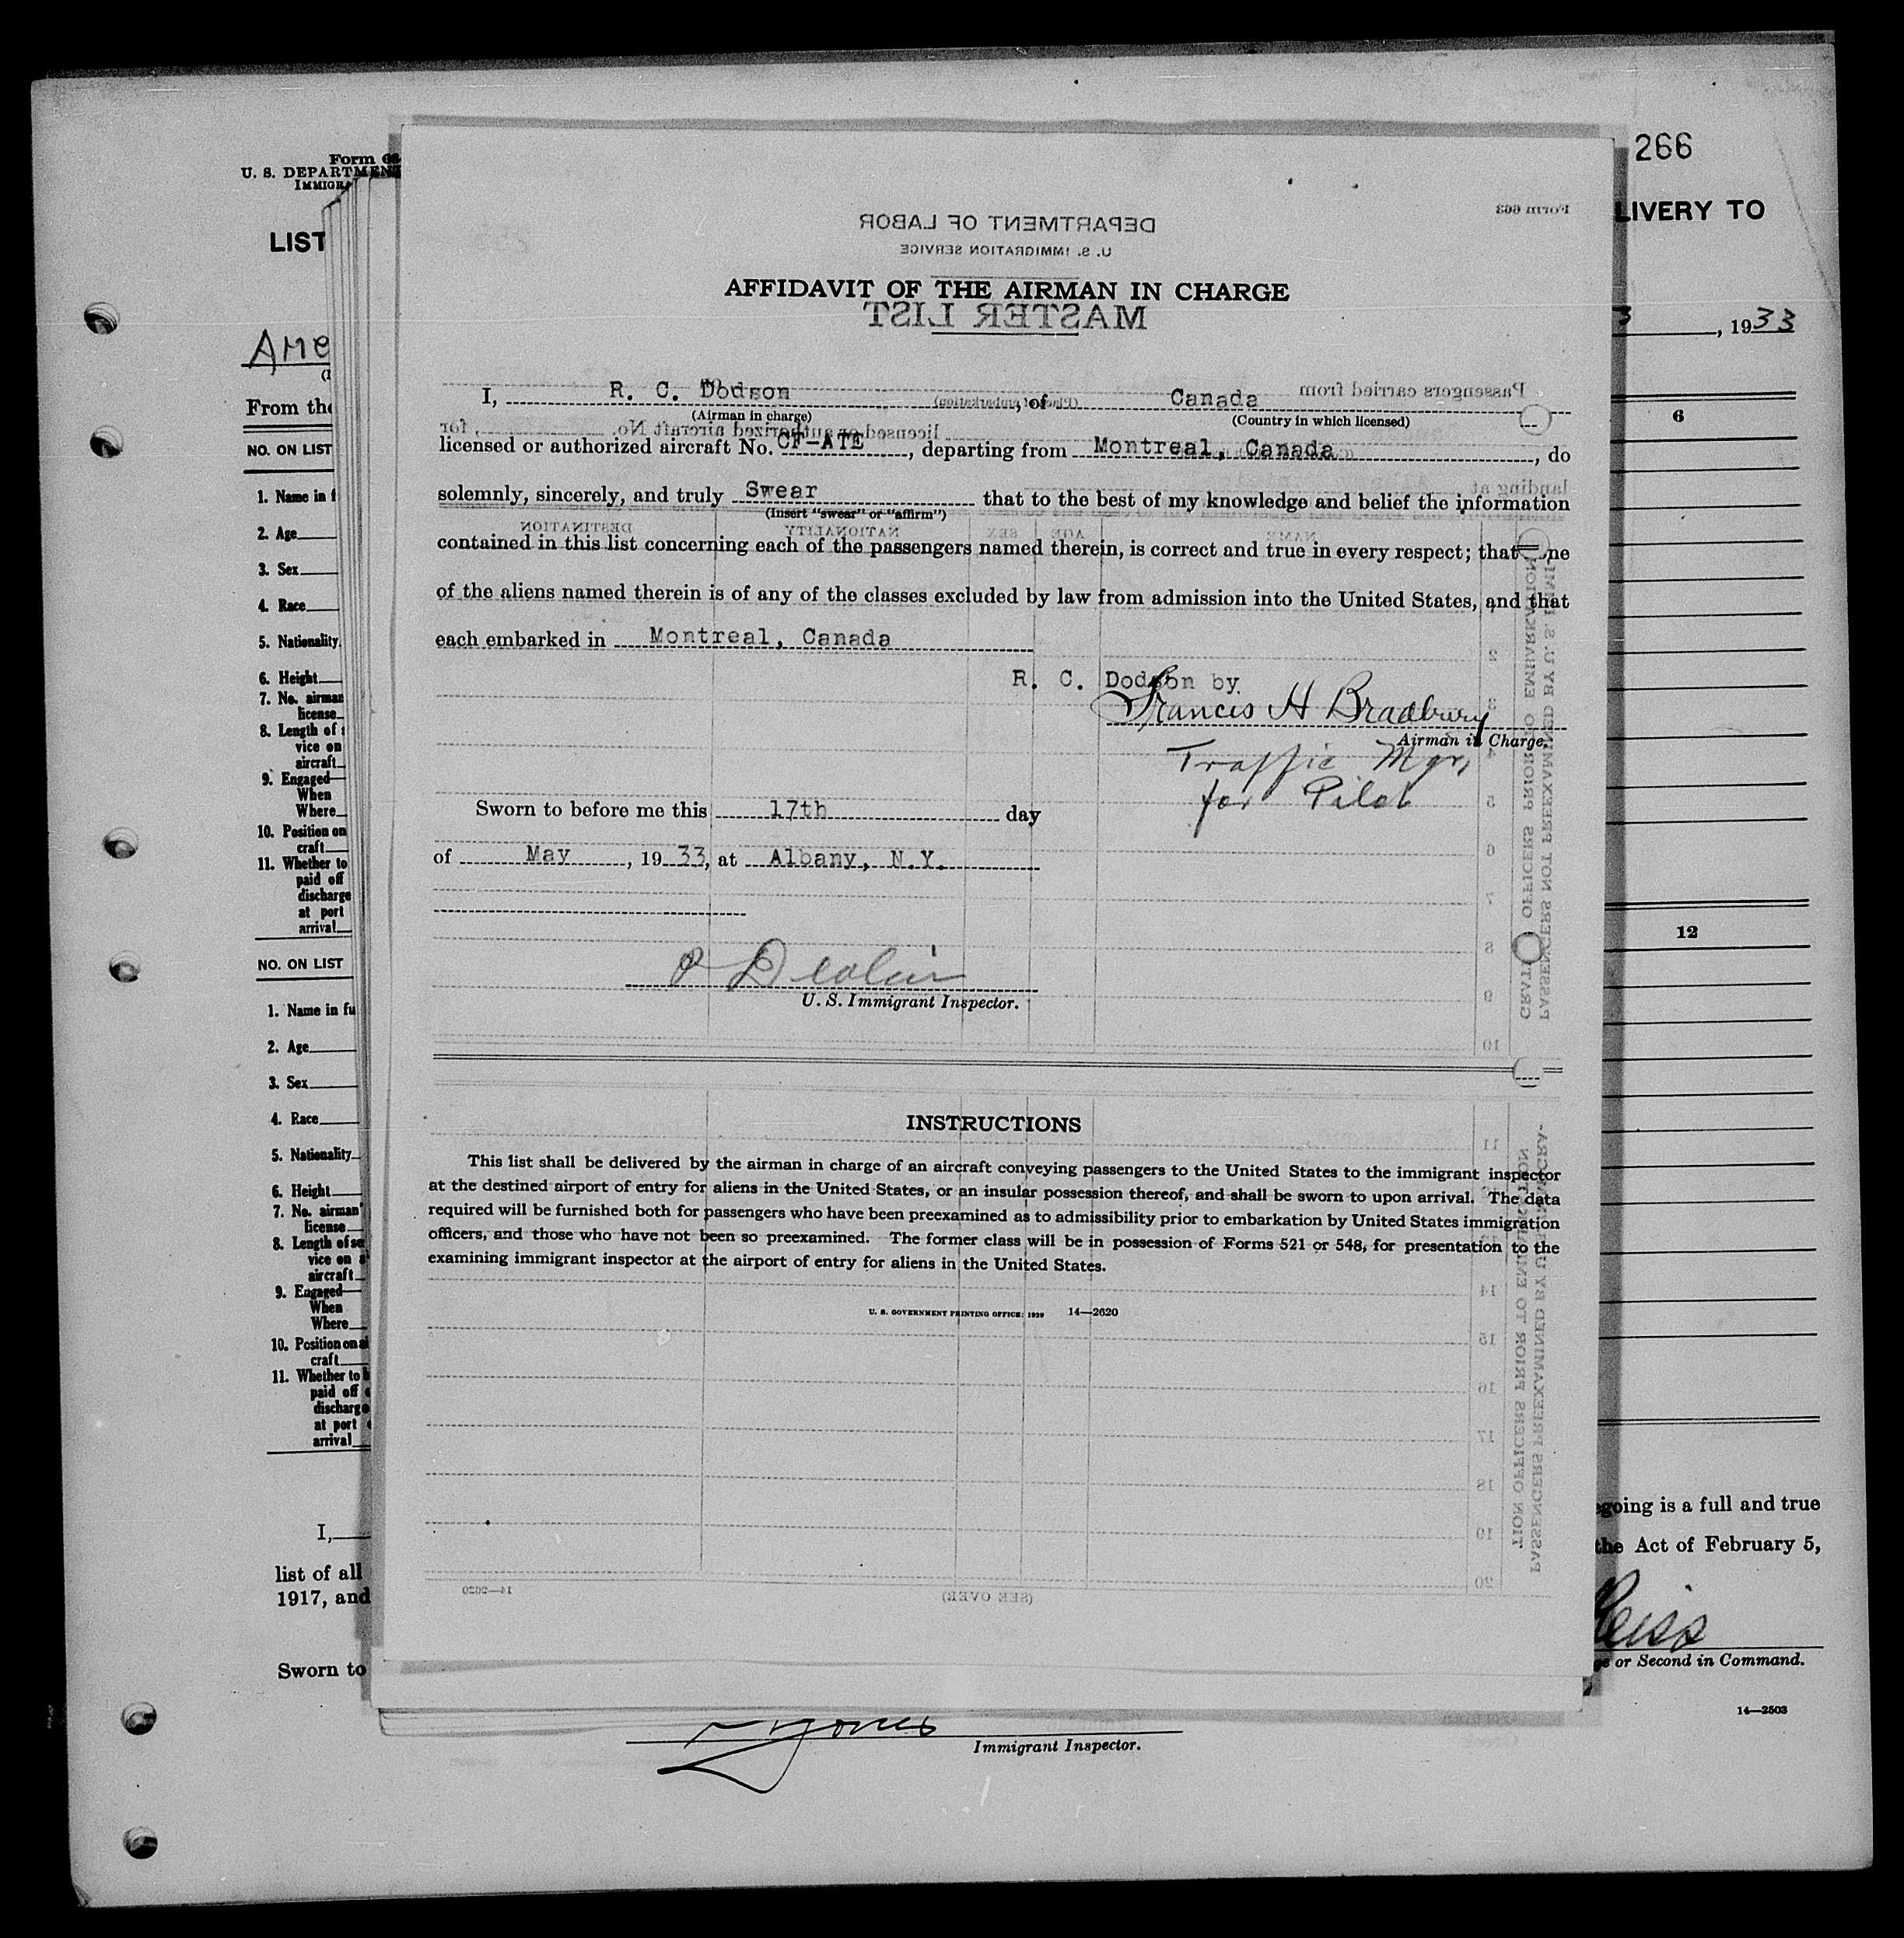 266
Form
U. S. DEPARTMENT
IMMIGRA
LIST
LIVERY TO
Form 663
DEPARTMENT OF LABOR
U. S. IMMIGRATION SERVICE
AFFIDAVIT OF THE AIRMAN IN CHARGE
MASTER LIST
3, 1933
Ame
From the
NO. ON LIST
6
Passengers carried from
(Place of embarkation)
I, R. C. Dodson, of Canada
(Airman in charge) (Country in which licensed)
licensed or authorized aircraft No. , for
licensed or authorized aircraft No. CF-ATE, departing from Montreal, Canada, do
landing at
solemnly, sincerely, and truly Swear that to the best of my knowledge and belief the information
(Insert "swear" or "affirm")
NAME AGE SEX NATIONALITY DESTINATION
contained in this list concerning each of the passengers named therein, is correct and true in every respect; that none
of the aliens named therein is of any of the classes excluded by law from admission into the United States, and that
each embarked in Montreal, Canada
R. C. Dodson by
Francis H Bradbury
Airman in Charge.
Traffic Mgr,
for Pilot
Sworn to before me this 17th day
of May, 1933, at Albany, N.Y.
U. S. Immigrant Inspector.
INSTRUCTIONS
This list shall be delivered by the airman in charge of an aircraft conveying passengers to the United States to the immigrant inspector
at the destined airport of entry for aliens in the United States, or an insular possession thereof, and shall be sworn to upon arrival. The data
required will be furnished both for passengers who have been preexamined as to admissibility prior to embarkation by United States immigration
officers, and those who have not been so preexamined. The former class will be in possession of Forms 521 or 548, for presentation to the
examining immigrant inspector at the airport of entry for aliens in the United States.
U. S. GOVERNMENT PRINTING OFFICE: 1929 14—2620
2
3
4
5
6
7
8
9
10
11
14
15
16
17
18
19
20
PASSENGERS NOT PREEXAMINED BY U. S. IMMI-
GRATION OFFICERS PRIOR TO EMBARKATION
PASSENGERS PREEXAMINED BY U. S. IMMIGRA-
TION OFFICERS PRIOR TO EMBARKATION
(SEE OVER)
14—2620
1. Name in f
2. Age
3. Sex
4. Race
5. Nationality
6. Height
7. No. airman
license
8. Length of s
vice on
aircraft
9. Engaged—
When
Where
10. Position on
craft
11. Whether to
paid off
discharge
at port
arrival
NO. ON LIST
12
1. Name in fu
2. Age
3. Sex
4. Race
5. Nationality
6. Height
7. No. airman'
license
8. Length of se
vice on a
aircraft
9. Engaged—
When
Where
10. Position on a
craft
11. Whether to b
paid off
discharge
at port
arrival
I,
egoing is a full and true
list of all
the Act of February 5,
1917, and
Sworn to
or Second in Command.
14—2503
Immigrant Inspector.